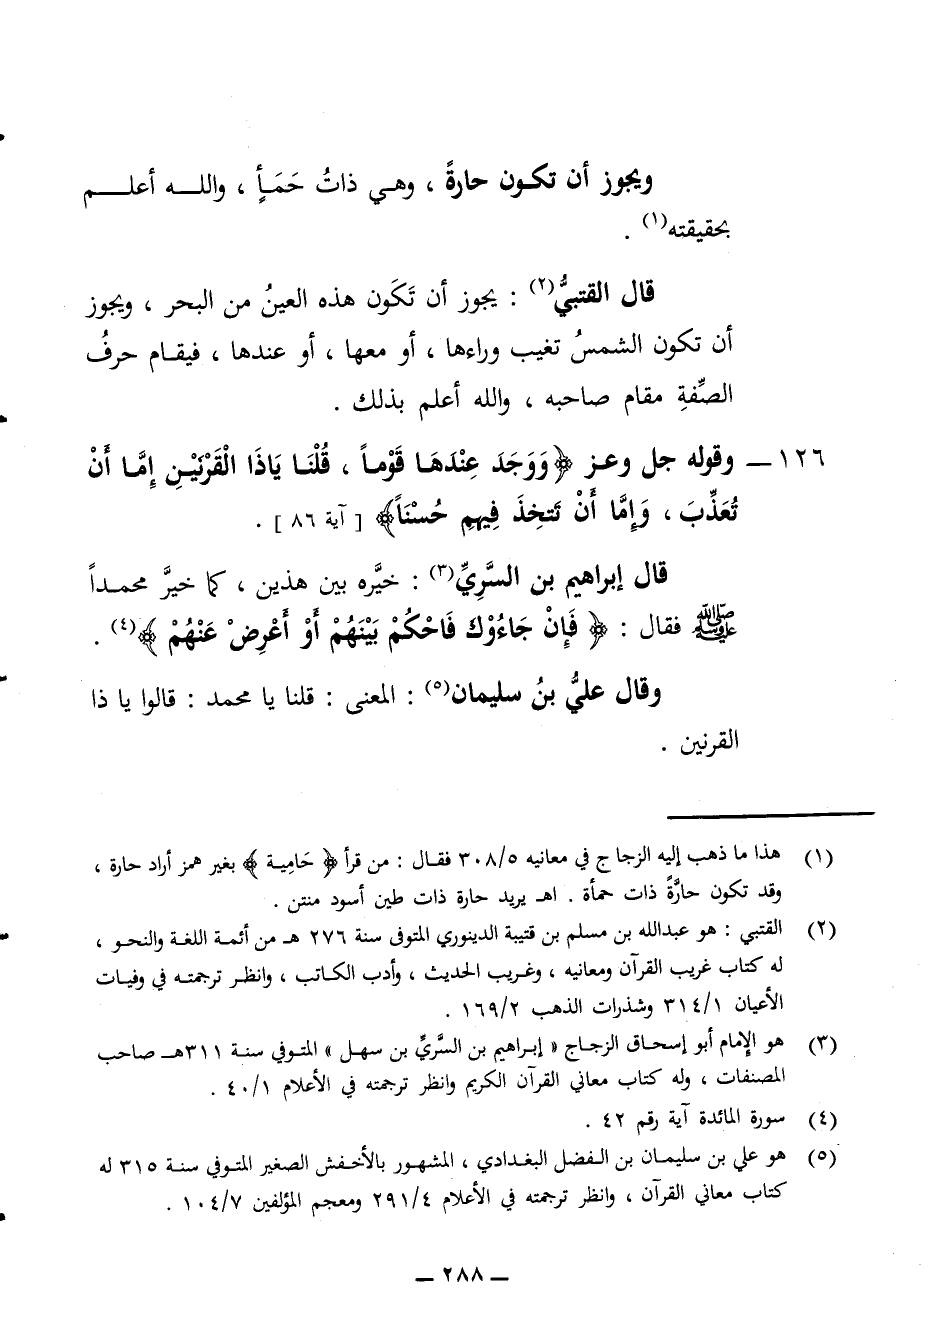 ويجوز أن تكون حارةً ، وهي ذاتُ حَمَأٍ ، والله أعلم
بحقيقته(١) .
قال القتبيُّ(٢) : يجوز أن تَكَون هذه العينُ من البحر ، ويجوز
أن تكون الشمسُ تغيب وراءها ، أو معها ، أو عندها ، فيقام حرفُ
الصِّفةِ مقام صاحبه ، والله أعلم بذلك .
١٢٦ ــ وقوله جل وعز ﴿وَوَجَد عِنْدَهَا قَوْماً ، قُلْنَا يَاذَا الْقَرْنَيْنِ إِمَّا أَنْ
تُعَذِّبَ ، وَإِمَّا أَنْ تَتخِذَ فِيهِم حُسْنَاً﴾ [ آية ٨٦ ] .
قال إبراهيم بن السَّرِيِّ(٣) : خيَّره بين هذين ، كما خيرَّ محمداً
ﷺ فقال : ﴿ فَإِنْ جَاءُوْكَ فَاحْكُمْ بَيْنَهُمْ أَوْ أَعْرِضْ عَنْهُمْ ﴾(٤) .
وقال عليُّ بنُ سليمان(٥) : المعنى : قلنا يا محمد : قالوا يا ذا
القرنين .
(١) هذا ما ذهب إليه الزجاج في معانيه ٣٠٨/٥ فقال : من قرأ ﴿ حَامِية ﴾ بغير همز أراد حارة ،
وقد تكون حارَّةً ذات حمأة . اهـ يريد حارة ذات طين أسود منتن .
(٢) القتبي : هو عبدالله بن مسلم بن قتيبة الدينوري المتوفى سنة ٢٧٦ هـ من أئمة اللغة والنحو ،
له كتاب غريب القرآن ومعانيه ، وغريب الحديث ، وأدب الكاتب ، وانظر ترجمته في وفيات
الأعيان ٣١٤/١ وشذرات الذهب ١٦٩/٢ .
(٣) هو الإمام أبو إسحاق الزجاج « إبراهيم بن السَّريِّ بن سهل » المتوفي سنة ٣١١هـ صاحب
المصنفات ، وله كتاب معاني القرآن الكريم وانظر ترجمته في الأعلام ٤٠/١ .
(٤) سورة المائدة آية رقم ٤٢ .
(٥) هو علي بن سليمان بن الفضل البغدادي ، المشهور بالأخفش الصغير المتوفي سنة ٣١٥ له
كتاب معاني القرآن ، وانظر ترجمته في الأعلام ٢٩١/٤ ومعجم المؤلفين ١٠٤/٧ .
ــ ٢٨٨ ــ